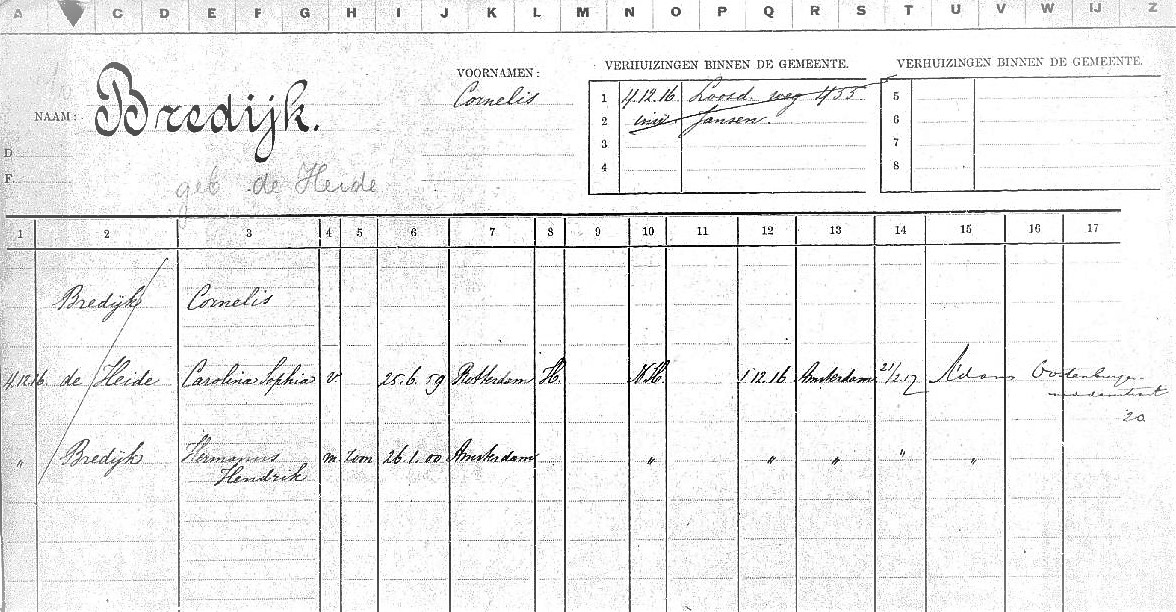 A C D E F G H I J K L M N O P Q R S T U V W IJ Z
NAAM: Bredijk.
geb de Heide
D
F.
VOORNAMEN:
Cornelis
VERHUIZINGEN BINNEN DE GEMEENTE.
1 4.12.16 Loosd. weg 455
2 Jansen
3
4
VERHUIZINGEN BINNEN DE GEMEENTE.
5
6
7
8
1 2 3 4 5 6 7 8 9 10 11 12 13 14 15 16 17
Bredijk Cornelis
4.12.16. de Heide Carolina Sophia v. 25.6.59 Rotterdam H. N.H. 1.12.16 Amsterdam 21/2.17 A'dam
20
" Bredijk Hermanus Hendrik m. zoon 26.1.00 Amsterdam " " " " "